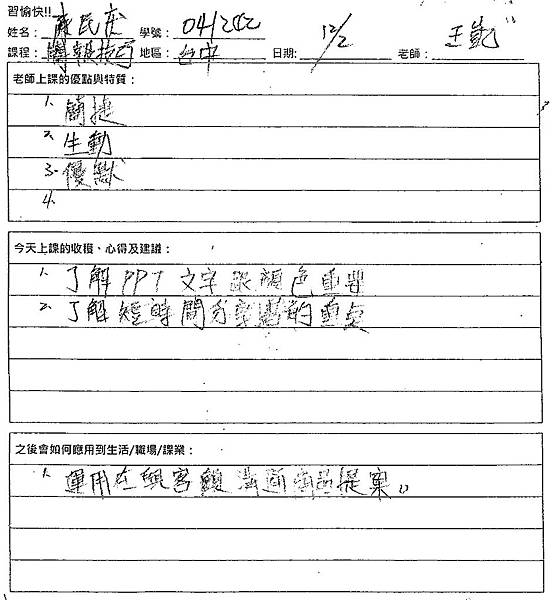 習愉快!!
姓名: 民 學號: 041242 日期: 12/2 老師: 王凱
課程: 簡報技巧 地區: 台中
老師上課的優點與特質:
1. 簡捷
2. 生動
3. 優默
4.
今天上課的收穫、心得及建議:
1. 了解PPT文字跟顏色重要
2. 了解短時間分享 的重點
之後會如何應用到生活/職場/課業:
1. 運用在與客戶溝通 提案。